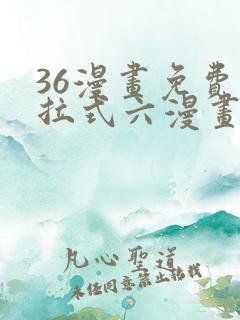 36漫畫免費
拉弍六漫畫
凡心聖道
未任同意禁止轉載